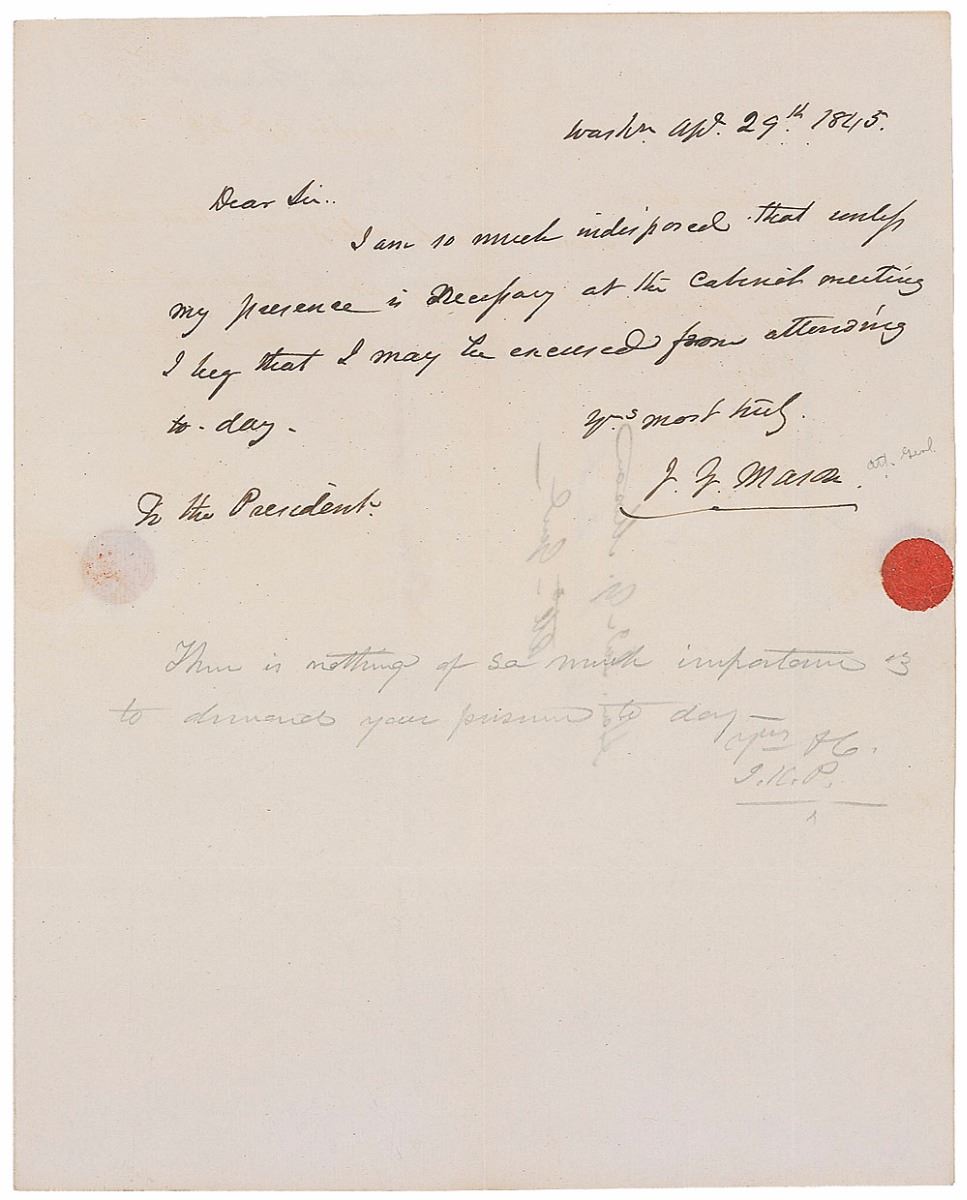 Washn. Apl. 29th. 1845.
Dear Sir..
I am so much indisposed that unless
my presence is necessary at the Cabinet meeting
I beg that I may be excused from attending
to-day-
Yrs most truly.
J. Y. Mason
att. Genl.
To the President.
There is nothing of so much importance as
to demand your presence to day—
Yrs &c.
J.K.P.